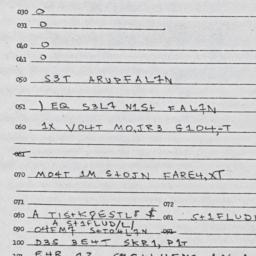 030 O
031 O
040 O
041 O
050 S3T ARUPFAL7N
051 ) EQ S3L7 N1St FAL7N
060 1X VO4T MO,JR3 S1O4,-T
061
070 MO4T 1M S+OJN FARE4,XT
071 072
080 A TIS+KPESTL8 $ 081 S+1FLUD
A S+1FLUD/L/
090 O4FM7 S+TO4L7N 091
100 D3S BE4T SKR1, P1T